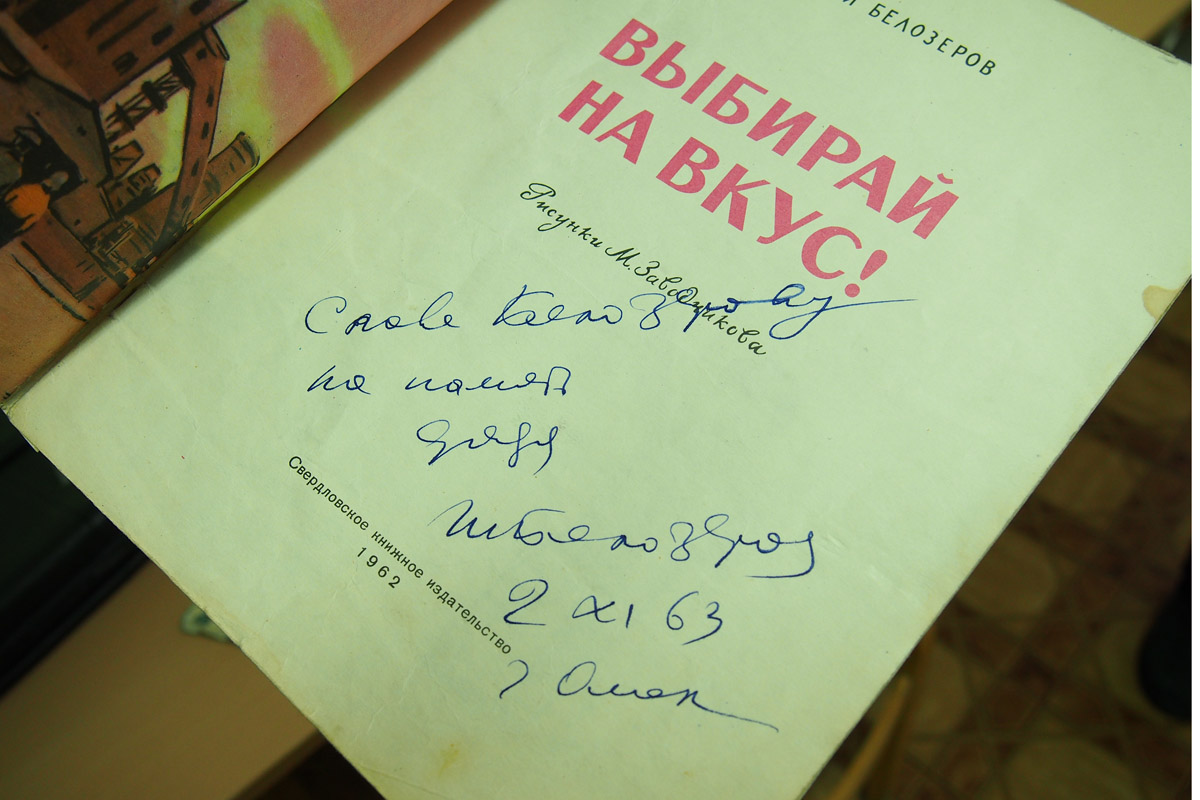 й БЕЛОЗЕРОВ
ВЫБИРАЙ
НА ВКУС!
Рисунки М. Заводчикова
Славе Белозерову
на память
дядя
ТБелозеров
2 XI 63
г Омск
Свердловское книжное издательство
1962